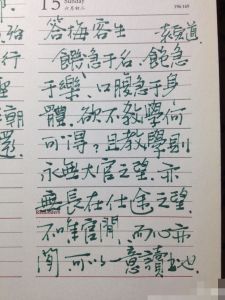 15 Sunday
196-169
答梅客生
袁宏道
饑急于名、飽急
于樂、口腹急于身
體．欲不教學何
可得？且教學則
永無大官之望．亦
無長在仕途之望．
不唯官閒、而心亦
閒、可以一意讀書也．
行